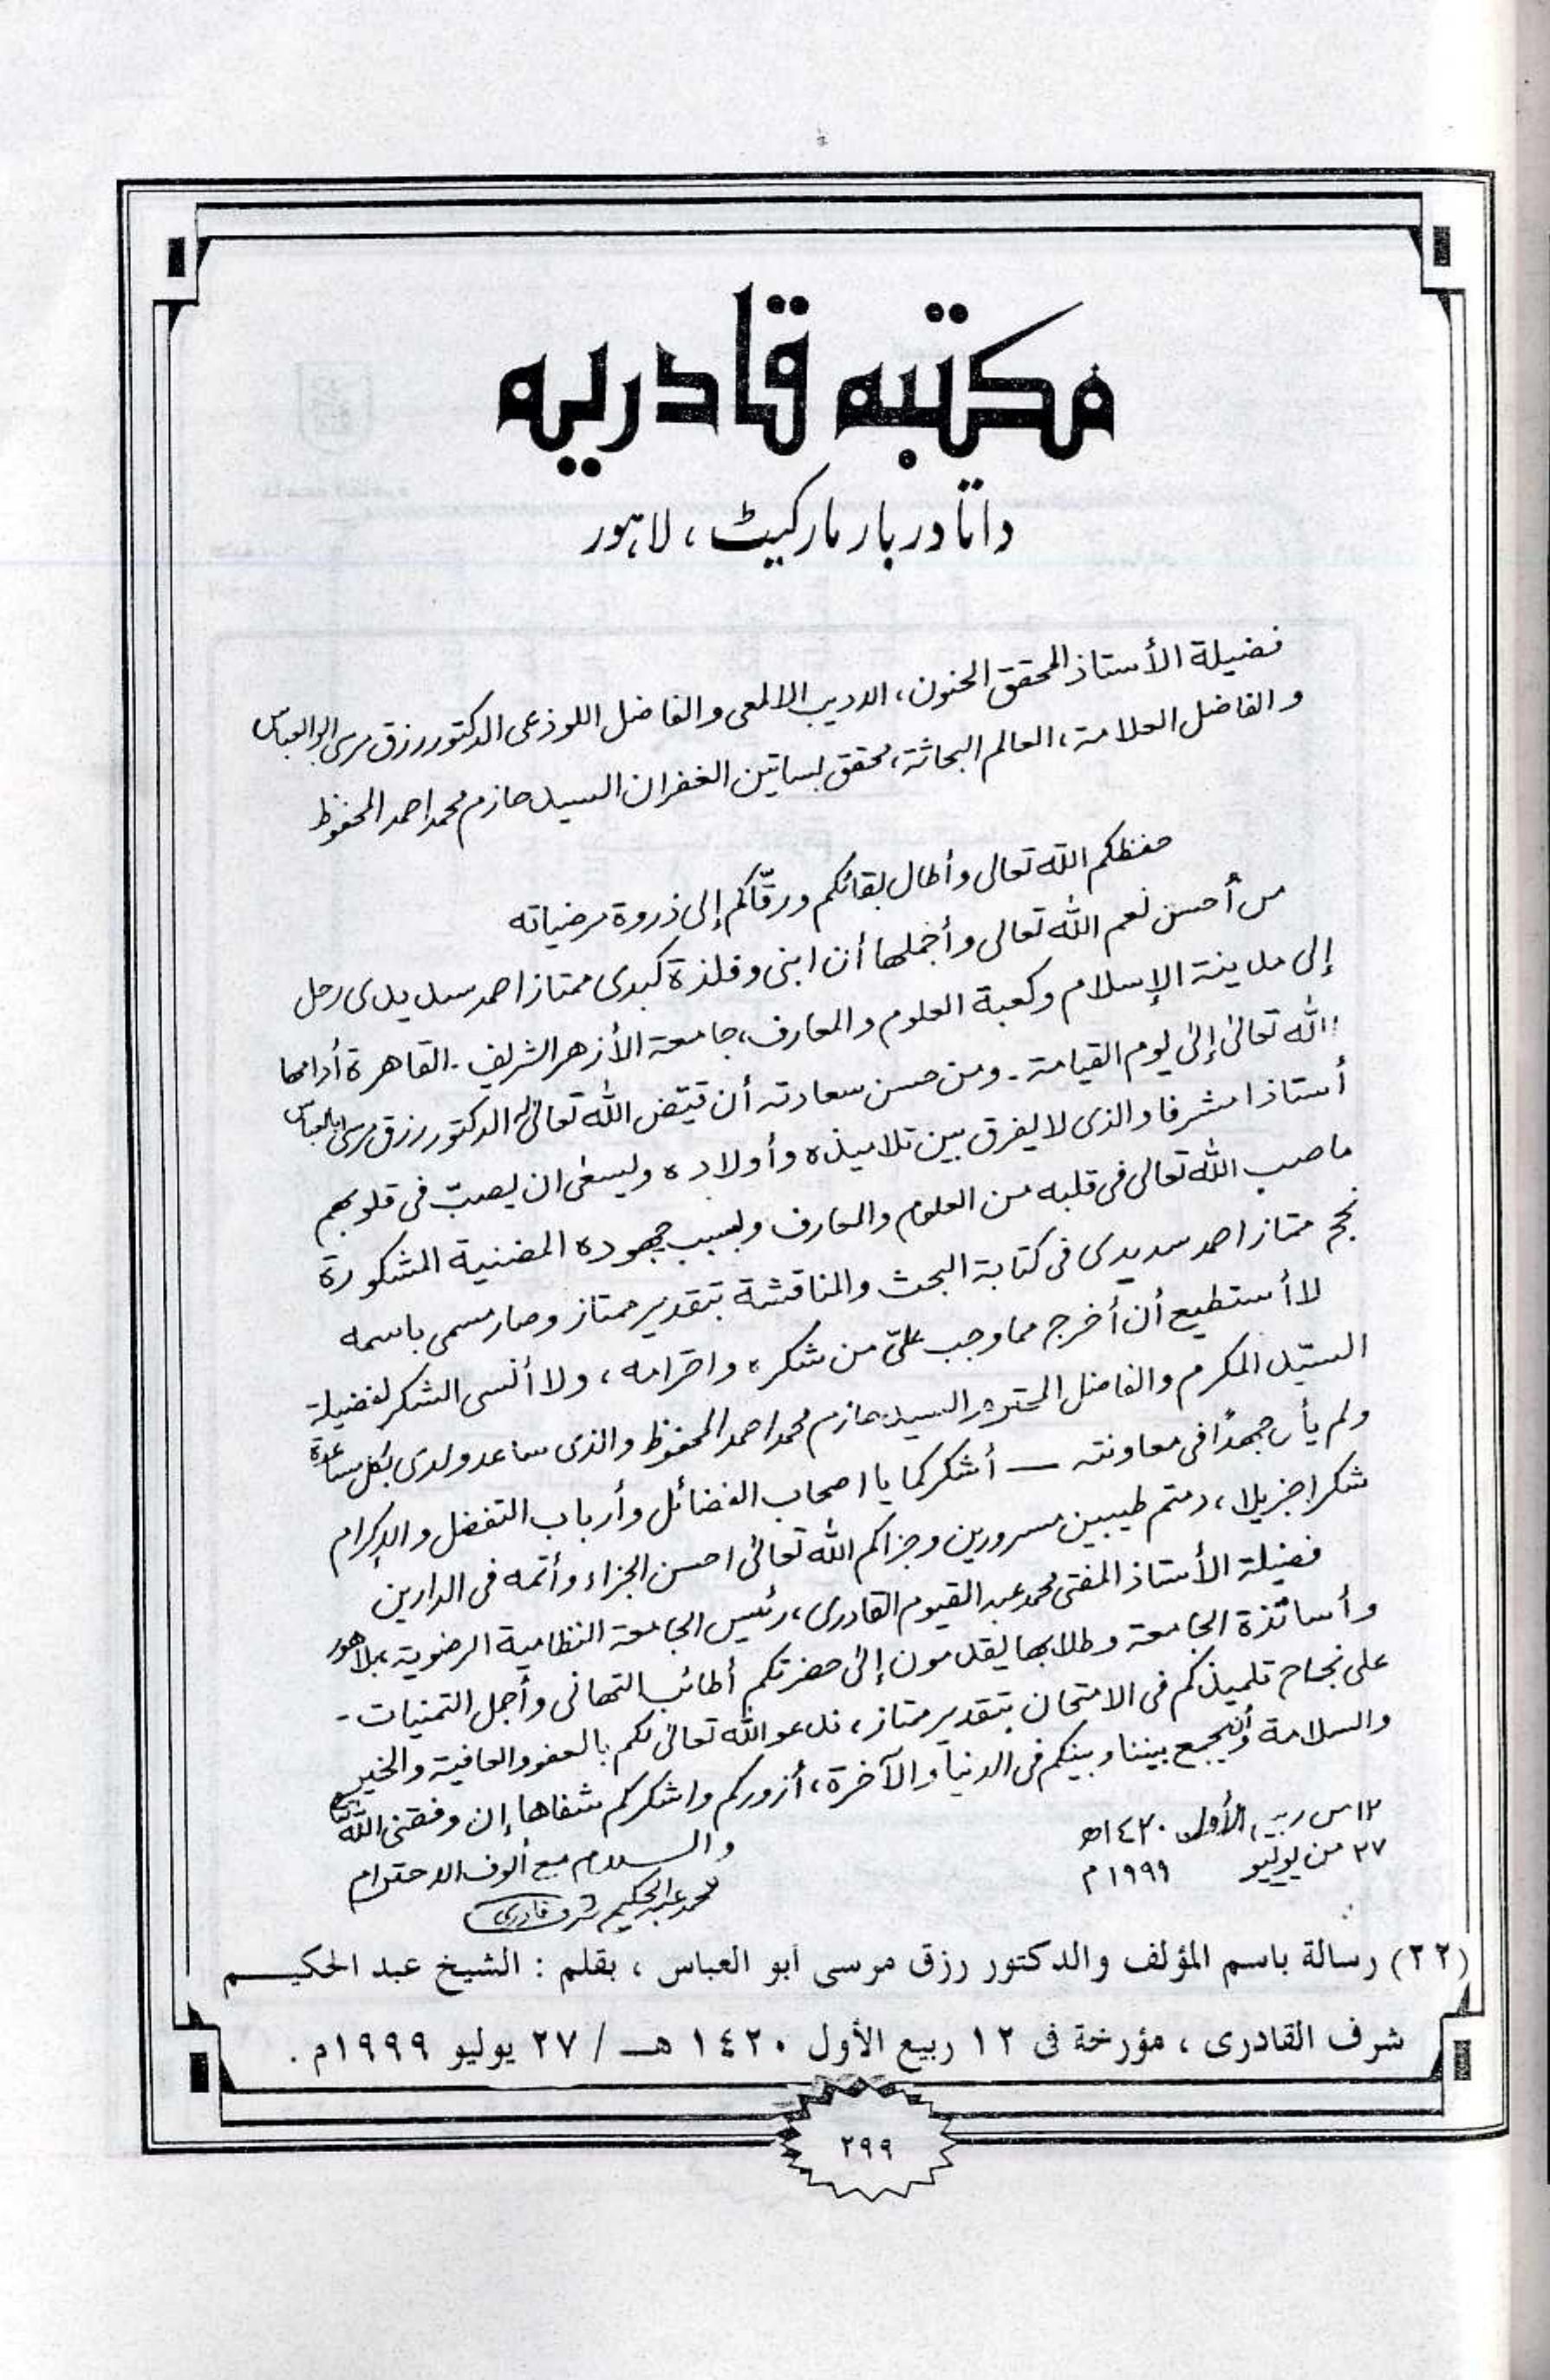 مكتبه قادريه
داتا دربار مارکیٹ، لاہور
فضيلة الأستاذ المحقق الحنون، الاديب الالمعى والفاضل اللوذعى الدكتور رزق مرسى ابو العباس
والفاضل العلامة، العالم البحاثة، محقق بساتين الغفران السيد حازم محمد احمد المحفوظ
حفظكم الله تعالى وأطال بقائكم ورقّاكم إلى ذروة مرضياته
من أحسن نعم الله تعالى وأجملها أن ابنى وفلذة كبدى ممتاز احمد سديدى رحل
إلى مدينة الإسلام وكعبة العلوم والمعارف، جامعة الأزهر الشريف - القاهرة أدامها
الله تعالىٰ إلىٰ يوم القيامة - ومن حسن سعادته أن قيّض الله تعالىٰ له الدكتور رزق مرسى ابا العباس
أستاذا مشرفا والذى لا يفرق بين تلاميذه وأولاده ويسعىٰ ان يصبّ فى قلوبهم
ما صب الله تعالى فى قلبه من العلوم والمعارف وبسبب جهوده المضنية المشكورة
نجح ممتاز احمد سديدى فى كتابة البحث والمناقشة بتقدير ممتاز وصار مسمى باسمه
لا أستطيع أن أخرج مما وجب علىّ من شكره واحترامه، ولا أنسى الشكر لفضيلة
السيّد المكرم والفاضل المحترم السيد حازم محمد احمد المحفوظ والذى ساعد ولدى بكل مساعدة
ولم يأل جهدًا فى معاونته — أشكركما يا اصحاب الفضائل وأرباب التفضل والإكرام
شكرا جزيلا، دمتم طيبين مسرورين وجزاكم الله تعالىٰ احسن الجزاء وأتمه فى الدارين
فضيلة الأستاذ المفتى محمد عبد القيوم القادرى، رئيس الجامعة النظامية الرضوية، بلاهور
وأساتذة الجامعة وطلابها يقدمون إلىٰ حضرتكم أطائب التهانى وأجمل التمنيات -
على نجاح تلميذكم فى الامتحان بتقدير ممتاز، ندعو الله تعالىٰ لكم بالعفو والعافية والخير
والسلامة وأن يجمع بيننا وبينكم فى الدنيا والآخرة، أزوركم واشكركم شفاها إن وفقنى الله تعالىٰ
والسلام مع ألوف الاحترام
محمد عبد الحكيم شرف قادرى
١٢ من ربيع الأول ١٤٢٠ھ
٢٧ من يوليو ١٩٩٩م
(٢٢) رسالة باسم المؤلف والدكتور رزق مرسى أبو العباس ، بقلم : الشيخ عبد الحكيـــم
شرف القادرى ، مؤرخة فى ١٢ ربيع الأول ١٤٢٠ هـــ / ٢٧ يوليو ١٩٩٩م .
٢٩٩